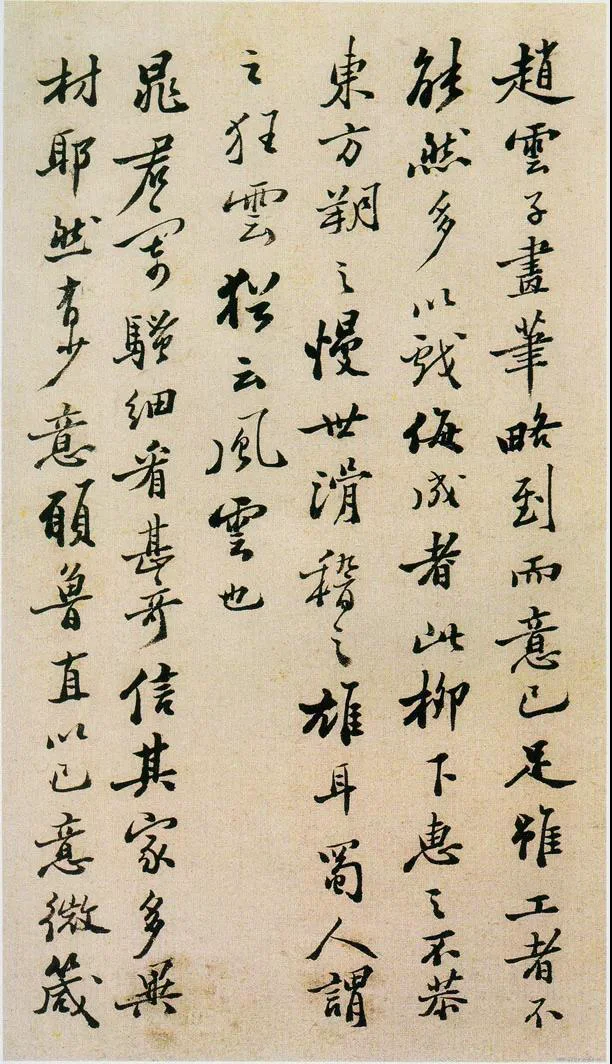 趙雲子畫筆略到而意已足雖工者不
能然多以戲侮成者此柳下惠之不恭
東方朔之慢世滑稽之雄耳蜀人謂
之狂雲猶云風雲也
晁君寄騷細看甚奇信其家多異
材耶然有少意願魯直以已意微箴